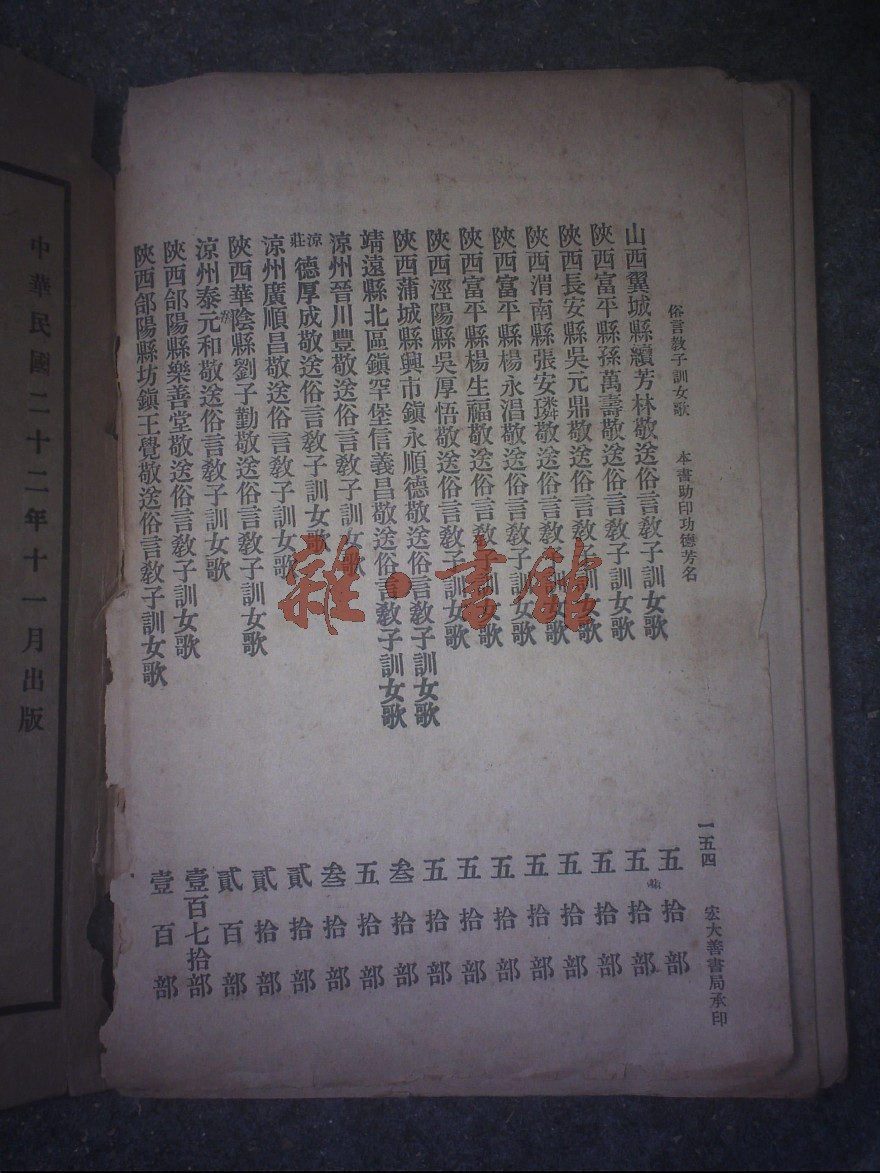 俗言教子訓女歌 本書助印功德芳名 一五四 宏大善書局承印
山西翼城縣續芳林敬送俗言教子訓女歌 五拾部
陝西富平縣孫萬壽敬送俗言教子訓女歌 五拾部
陝西長安縣吳元鼎敬送俗言教子訓女歌 五拾部
陝西渭南縣張安璘敬送俗言教子訓女歌 五拾部
陝西富平縣楊永淐敬送俗言教子訓女歌 五拾部
陝西富平縣楊生福敬送俗言教子訓女歌 五拾部
陝西涇陽縣吳厚悟敬送俗言教子訓女歌 五拾部
陝西蒲城縣興市鎮永順德敬送俗言教子訓女歌 五拾部
靖遠縣北區鎮罕堡信義昌敬送俗言教子訓女歌 叁拾部
涼州晉川豐敬送俗言教子訓女歌 五拾部
涼莊德厚成敬送俗言教子訓女歌 叁拾部
涼州廣順昌敬送俗言教子訓女歌 貳拾部
陝西華陰縣劉子勤敬送俗言教子訓女歌 貳拾部
涼州泰元和敬送俗言教子訓女歌 貳百部
陝西郃陽縣樂善堂敬送俗言教子訓女歌 壹百七拾部
陝西郃陽縣坊鎮王覺敬送俗言教子訓女歌 壹百部
中華民國二十二年十一月出版
雜·書館